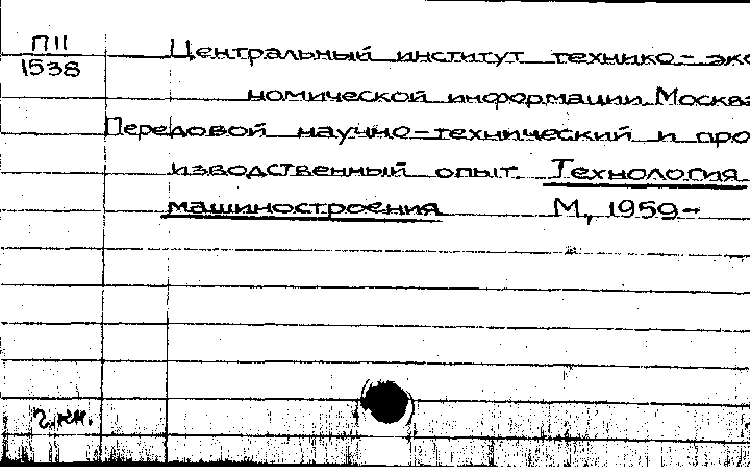 П11
1538
Центральный институт технико-эко
номической информации. Москва
Передовой научно-технический и про
изводственный опыт. Технология
машиностроения М, 1959-